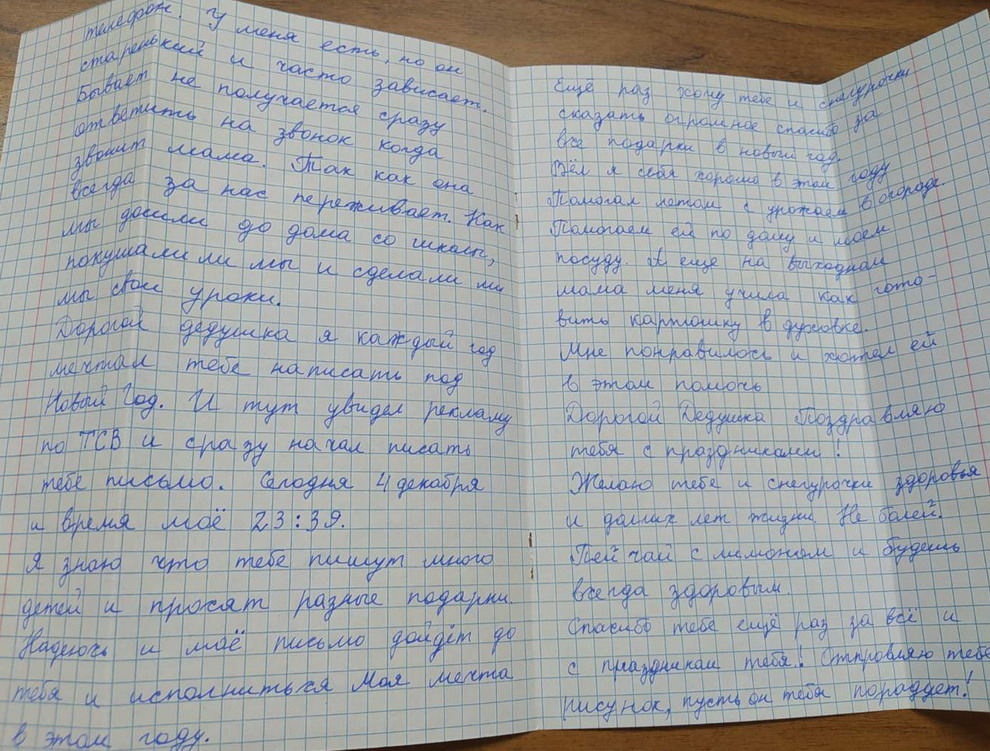 телефон. У меня есть, но он
старенький и часто зависает.
Бывает не получается сразу
ответить на звонок когда
звонит мама. Так как она
всегда за нас переживает. Как
мы дошли до дома со школы,
покушали ли мы и сделали ли
мы свои уроки.
Дорогой дедушка я каждый год
мечтал тебе написать под
Новый Год. И тут увидел рекламу
по ТСВ и сразу начал писать
тебе письмо. Сегодня 4 декабря
и время моё 23:39.
Я знаю что тебе пишут много
детей и просят разные подарки.
Надеюсь и моё письмо дойдёт до
тебя и исполниться моя мечта
в этом году.
Ещё раз хочу тебе и снегурочки
сказать огромное спасибо за
все подарки в новый год.
Вёл я себя хорошо в этом году
Помогал летом с урожаем в огороде.
Помогаем ей по дому и моем
посуду. А еще на выходном
мама меня учила как гото-
вить картошку в духовке.
Мне понравилось и хотел ей
в этом помочь
Дорогой Дедушка Поздравляю
тебя с праздниками!
Желаю тебе и снегурочки здоровья
и долгих лет жизни. Не болей.
Пей чай с лимоном и будешь
всегда здоровым.
Спасибо тебе ещё раз за всё и
с праздникам тебя! Отпровляю тебе
рисунок, пусть он тебя порадует!